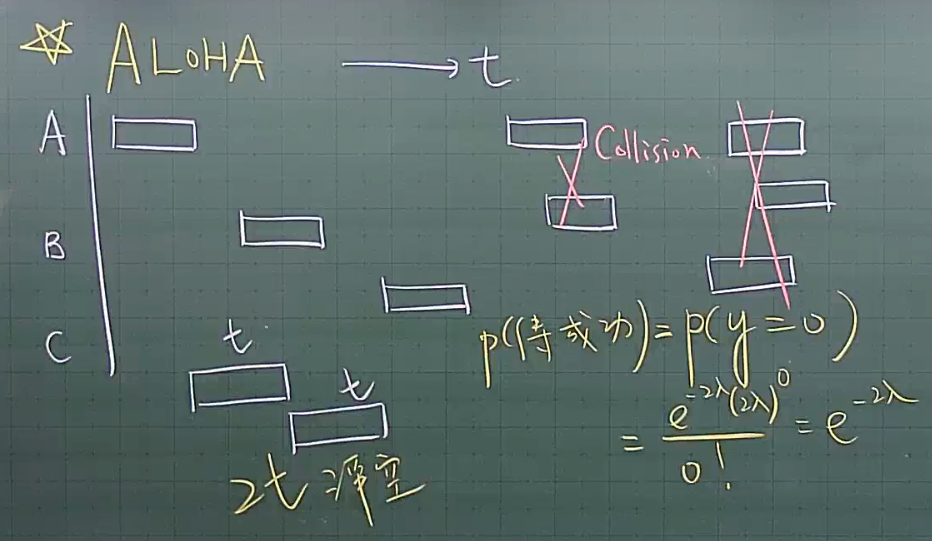 ☆ ALOHA → t
A
Collision
B
C
t
t
2t 淨空
p(傳成功) = p(y=0)
= e^{-2λ}(2λ)^0 / 0! = e^{-2λ}